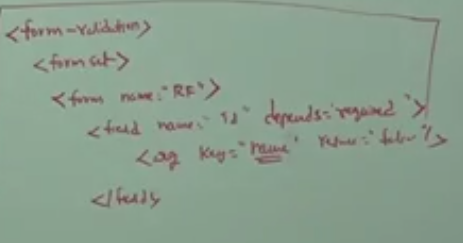 <form-validation>
<form set>
<form name="RF">
<field name="Id" depends="required">
<arg key="name" value="false"/>
</field>